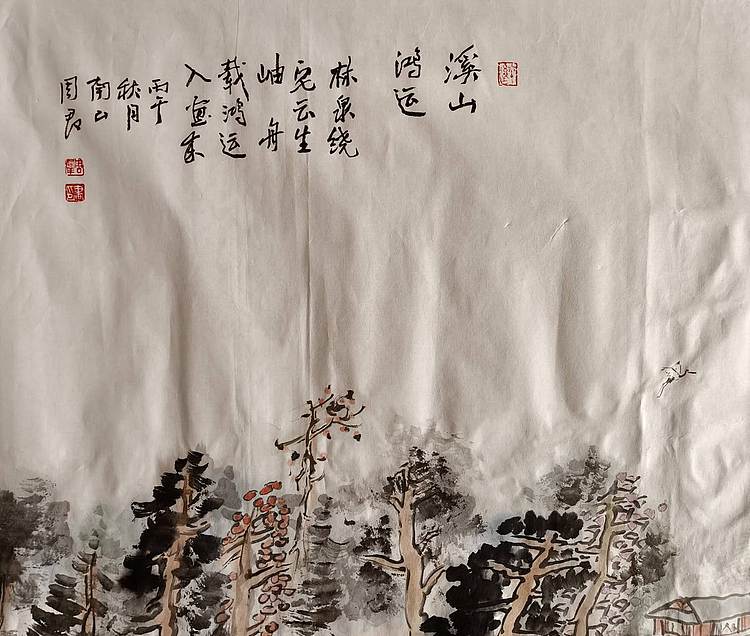 溪山
鸿运
林泉绕
宅云生
岫舟
载鸿运
入画来
丙午
秋月
南山
周君